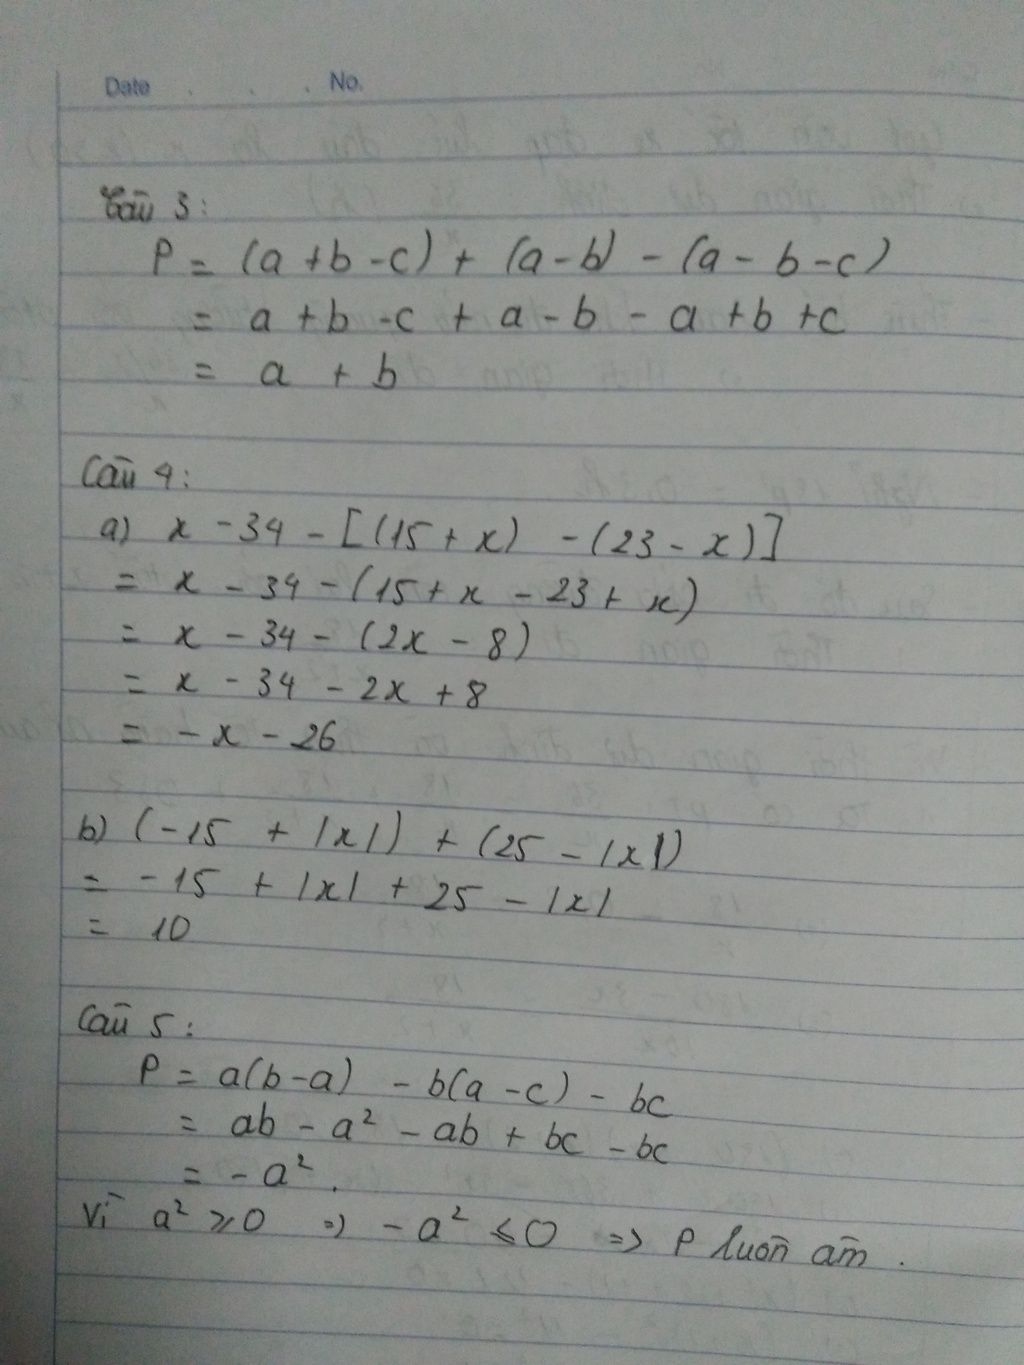 Date . . . No.
Câu 3:
P = (a + b - c) + (a - b) - (a - b - c)
= a + b - c + a - b - a + b + c
= a + b
Câu 4:
a) x - 34 - [(15 + x) - (23 - x)]
= x - 34 - (15 + x - 23 + x)
= x - 34 - (2x - 8)
= x - 34 - 2x + 8
= - x - 26
b) (-15 + |x|) + (25 - |x|)
= -15 + |x| + 25 - |x|
= 10
Câu 5:
P = a(b - a) - b(a - c) - bc
= ab - a² - ab + bc - bc
= - a².
Vì a² ≥ 0 => - a² ≤ 0 => P luôn âm.